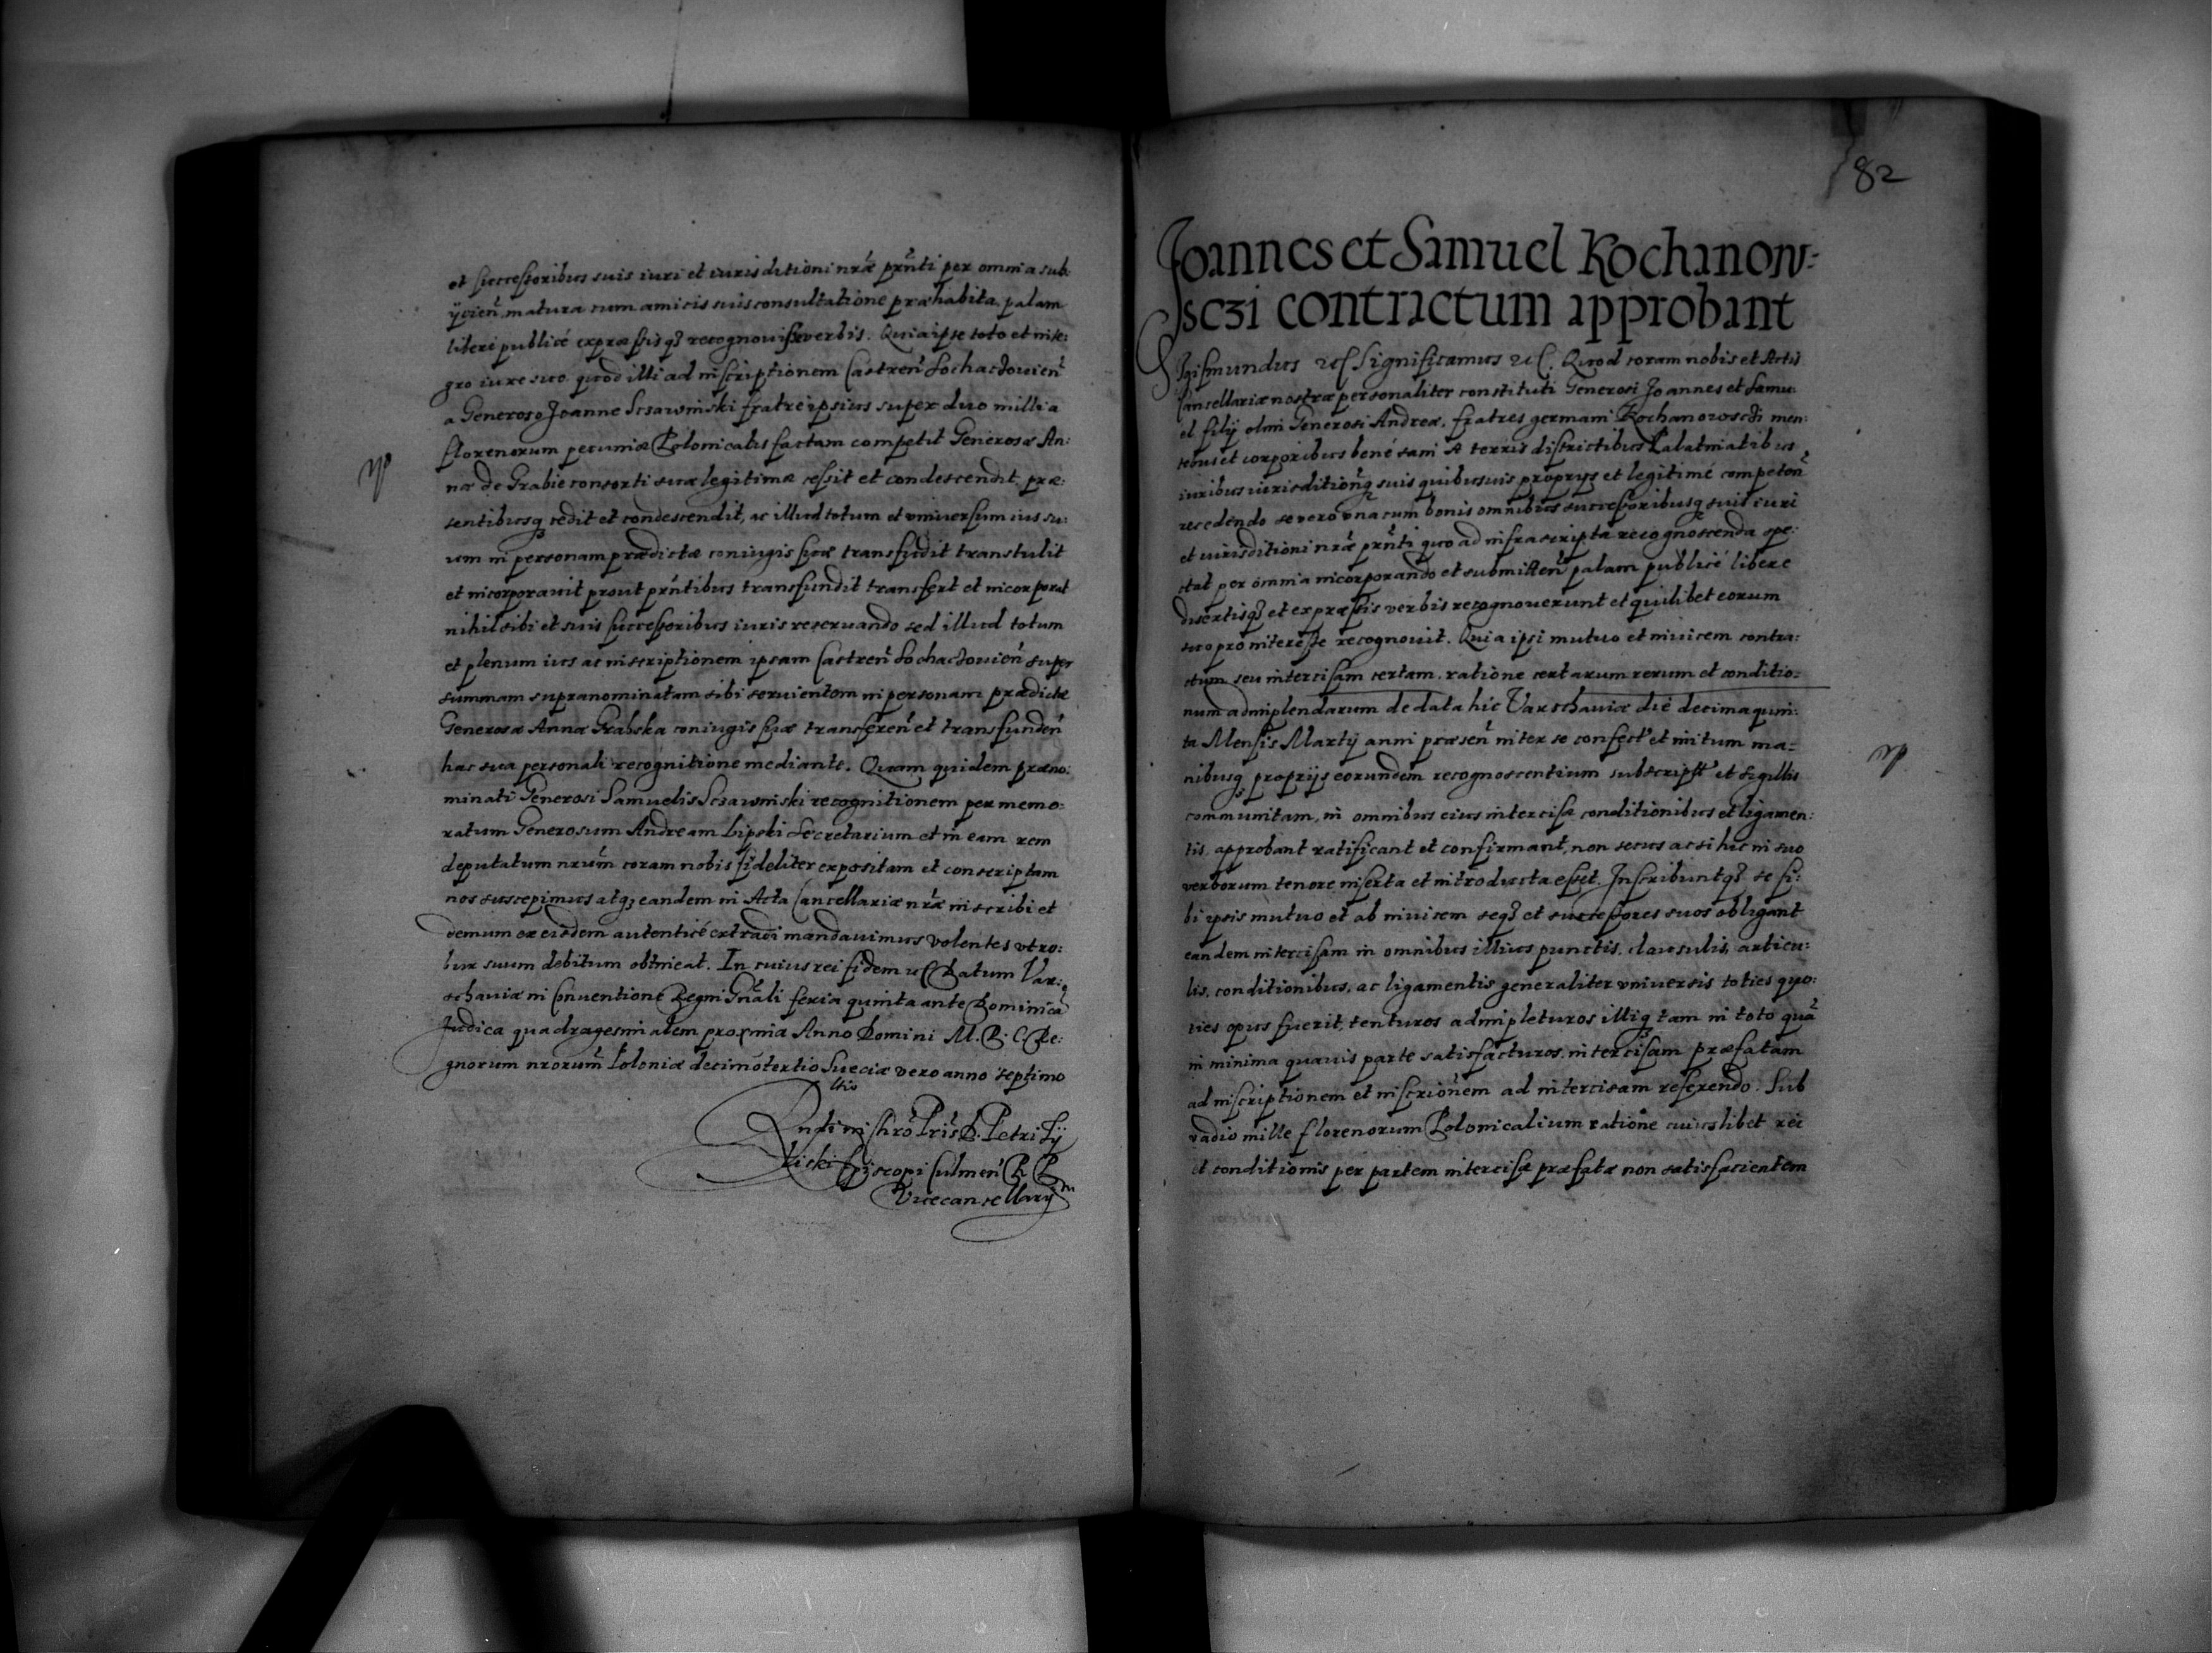 et successoribus suis iuri et iurisditioni nr̃æ pr̃nti per omnia sub:
ÿcien̄ matura cum amicis suis consultatione præhabita, palam
liberè publicé expræssisq3 recognouisse verbis. Quia ipse toto et inte:
gro iure suo quod illi ad inscriptionem Castren̄ Sochaczouien̄
a Generoso Joanne Sczawinski fratre ipsius super duo millia
florenorum pecuniæ Polonicalis factam competit Generosæ An:
næ de Grabie consorti suæ legitimæ cessit et condescendit, præ:
sentibusq3 cedit et condescendit, ac illud totum et vniuersum ius su:
um in personam prædictæ coniugis suæ transfudit transtulit
et incorporauit prout pr̃ntibus transfundit transfert et incorporat
nihil sibi et suis successoribus iuris reseruando sed illud totum
et plenum ius ac inscriptionem ipsam Castren̄ Sochaczouien̄ super
summam supranominatam sibi seruientem in personam prædictæ
Generosæ Annæ Grabska coniugis suæ transferen̄ et transfunden̄
hac sua personali recognitione mediante. Quam quidem præno:
minati Generosi Samuelis Sczawinski recognitionem per memo:
ratum Generosum Andream Lipski Secretarium et in eam rem
deputatum nrūm coram nobis fideliter expositam et conscriptam
nos suscepimus atq3 eandem in Acta Cancellariæ nr̃æ inscribi et
demum ex eisdem autenticé extradi mandauimus volentes vt ro:
bur suum debitum obtineat. In cuius rei fidem &c Datum Var:
schauiæ in Conuentione Regni Gn̄ali feria quinta ante Dominicā
Judica quadragesimalem proxima Anno Domini M.D.C. Re:
gnorum nrorum̄ Poloniæ decimotertio Sueciæ vero anno septimo
Petri Ty
liski Episcopi Culmen̄ R P
Vicecancellarij
82
Joannes et Samuel Kochanow:
sczi contractum approbant
Sigismundus &c Significamus &c. Quod coram nobis et Actis
Cancellariæ nostræ personaliter constituti Generosi Joannes et Samu:
el filÿ olim Generosi Andreæ, fratres germani Kochanowsczi men:
tebus et corporibus bené sani A terris districtibus Palatinatibus
iuribus iurisditionq3 suis quibusuis proprÿs et legitimé competen̄
recedendo se vero vna cum bonis omnibus successoribusq3 suis iuri
et iurisditioni nr̃æ pr̃nti quo ad infrascripta recognoscenda spe:
ctat per omnia incorporando et submitten̄ palam publicé libere
disertisq3 et expræssis verbis recognouerunt et quilibet eorum
suo pro interesse recognouit. Quia ipsi mutuo et inuicem contra:
ctum seu intercisam certam, ratione certarum rerum et conditio:
num adimplendarum de data hic Varschauiæ die decima quin:
ta Mensis Martÿ anni præsen̄ inter se confect' et initum ma:
nibusq3 proprÿs eorundem recognoscentium subscript' et sigillis
communitam, in omnibus eius intercisæ conditionibus et ligamen:
tis, approbant ratificant et confirmant, non secus ac si hic in suo
verborum tenore inserta et introducta esset. Inscribuntq3 se si:
bi ipsis mutuo et ab inuicem seq3 et successores suos obligant
eandem intercisam in omnibus illius punctis, clausulis, articu:
lis, conditionibus, ac ligamentis generaliter vniuersis toties quo:
ties opus fuerit, tenturos adimpleturos illiq3 tam in toto quā
in minima quauis parte satisfacturos, intercisam præfatam
ad inscriptionem et inscrionēm ad intercisam referendo. Sub
vadio mille florenorum Polonicalium ratione cuiuslibet rei
et conditionis per partem intercisæ præfatæ non satisfacientem